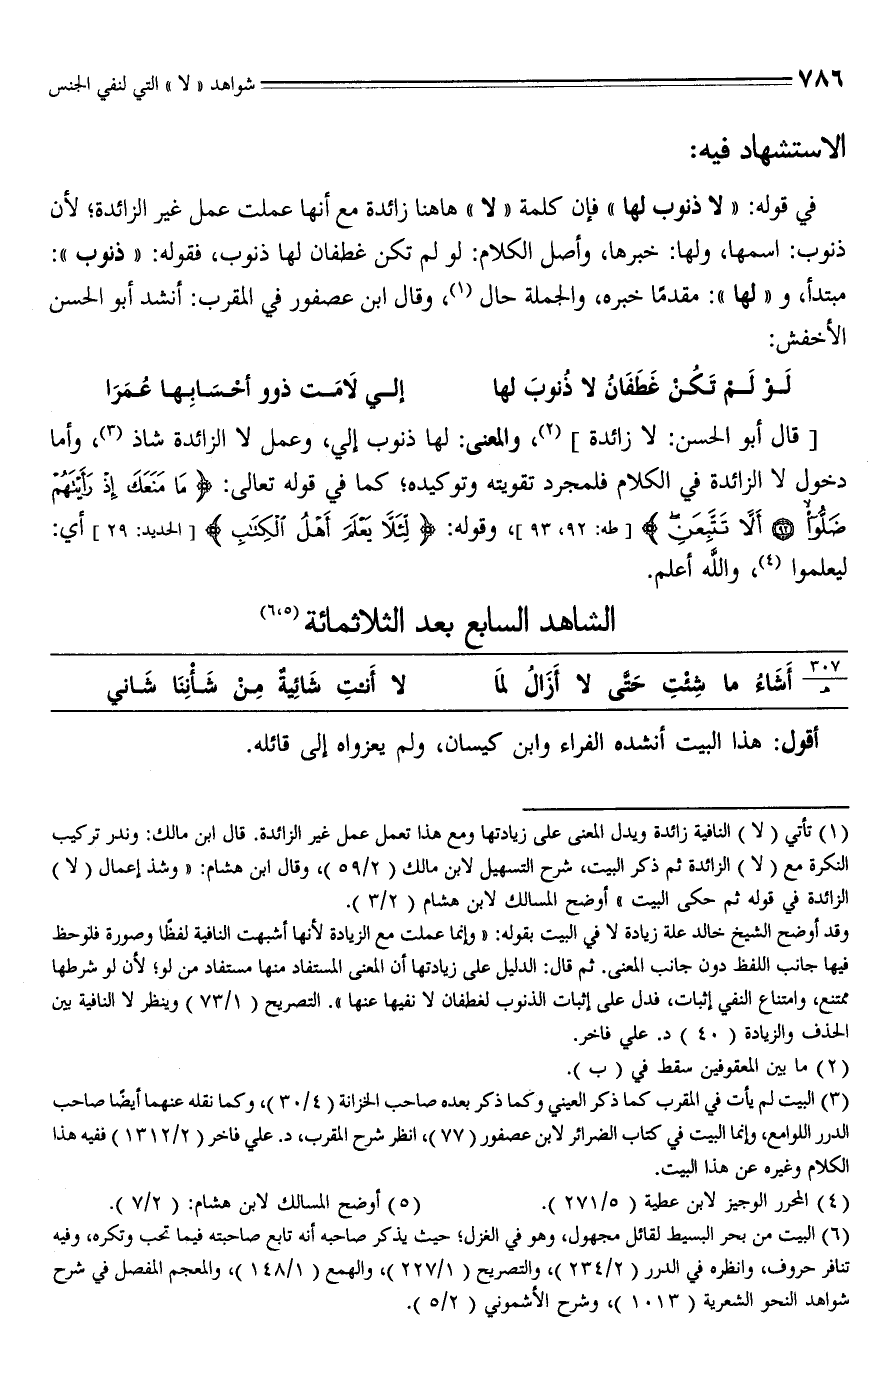 ٧٨٦ شواهد « لا » التي لنفي الجنس
الاستشهاد فيه:
في قوله: « لا ذنوب لها » فإن كلمة « لا » هاهنا زائدة مع أنها عملت عمل غير الزائدة؛ لأن
ذنوب: اسمها، ولها: خبرها، وأصل الكلام: لو لم تكن غطفان لها ذنوب، فقوله: « ذنوب »:
مبتدأ، و « لها »: مقدمًا خبره، والجملة حال (١)، وقال ابن عصفور في المقرب: أنشد أبو الحسن
الأخفش:
لَـوْ لَـمْ تَـكُـنْ غَطَفَانُ لا ذُنوبَ لها إلـي لَامَـت ذوو أحْـسَـابِـهـا عُـمَـرَا
[ قال أبو الحسن: لا زائدة ] (٢)، والمعنى: لها ذنوب إلي، وعمل لا الزائدة شاذ (٣)، وأما
دخول لا الزائدة في الكلام فلمجرد تقويته وتوكيده؛ كما في قوله تعالى: ﴿ مَا مَنَعَكَ إِذْ رَأَيْتَهُمْ
ضَلُّوٓاْ ۝٩٢ أَلَّا تَتَّبِعَنِۖ ﴾ [ طه: ٩٢، ٩٣ ]، وقوله: ﴿ لِّئَلَّا يَعْلَمَ أَهْلُ ٱلْكِتَٰبِ ﴾ [ الحديد: ٢٩ ] أي:
ليعلموا (٤)، واللَّه أعلم.
الشاهد السابع بعد الثلاثمائة (٥،٦)
٣٠٧/هـ أَشَاءُ ما شِئْتِ حَتَّى لا أَزَالُ لمَا لا أَنتِ شَائِيةٌ مِـنْ شَـأْنِنَا شَـاني
أقول: هذا البيت أنشده الفراء وابن كيسان، ولم يعزواه إلى قائله.
(١) تأتي ( لا ) النافية زائدة ويدل المعنى على زيادتها ومع هذا تعمل عمل غير الزائدة. قال ابن مالك: وندر تركيب
النكرة مع ( لا ) الزائدة ثم ذكر البيت، شرح التسهيل لابن مالك ( ٥٩/٢ )، وقال ابن هشام: « وشذ إعمال ( لا )
الزائدة في قوله ثم حكى البيت » أوضح المسالك لابن هشام ( ٣/٢ ).
وقد أوضح الشيخ خالد علة زيادة لا في البيت بقوله: « وإنما عملت مع الزيادة لأنها أشبهت النافية لفظًا وصورة فلوحظ
فيها جانب اللفظ دون جانب المعنى. ثم قال: الدليل على زيادتها أن المعنى المستفاد منها مستفاد من لو؛ لأن لو شرطها
ممتنع، وامتناع النفي إثبات، فدل على إثبات الذنوب لغطفان لا نفيها عنها ». التصريح ( ٧٣/١ ) وينظر لا النافية بين
الحذف والزيادة ( ٤٠ ) د. علي فاخر.
(٢) ما بين المعقوفين سقط في ( ب ).
(٣) البيت لم يأت في المقرب كما ذكر العيني وكما ذكر بعده صاحب الخزانة ( ٣٠/٤ )، وكما نقله عنهما أيضًا صاحب
الدرر اللوامع، وإنما البيت في كتاب الضرائر لابن عصفور ( ٧٧ )، انظر شرح المقرب، د. علي فاخر ( ١٣١٢/٢ ) ففيه هذا
الكلام وغيره عن هذا البيت.
(٤) المحرر الوجيز لابن عطية ( ٢٧١/٥ ). (٥) أوضح المسالك لابن هشام: ( ٧/٢ ).
(٦) البيت من بحر البسيط لقائل مجهول، وهو في الغزل؛ حيث يذكر صاحبه أنه تابع صاحبته فيما تحب وتكره، وفيه
تنافر حروف، وانظره في الدرر ( ٢٣٤/٢ )، والتصريح ( ٢٢٧/١ )، والهمع ( ١٤٨/١ )، والمعجم المفصل في شرح
شواهد النحو الشعرية ( ١٠١٣ )، وشرح الأشموني ( ٥/٢ ).